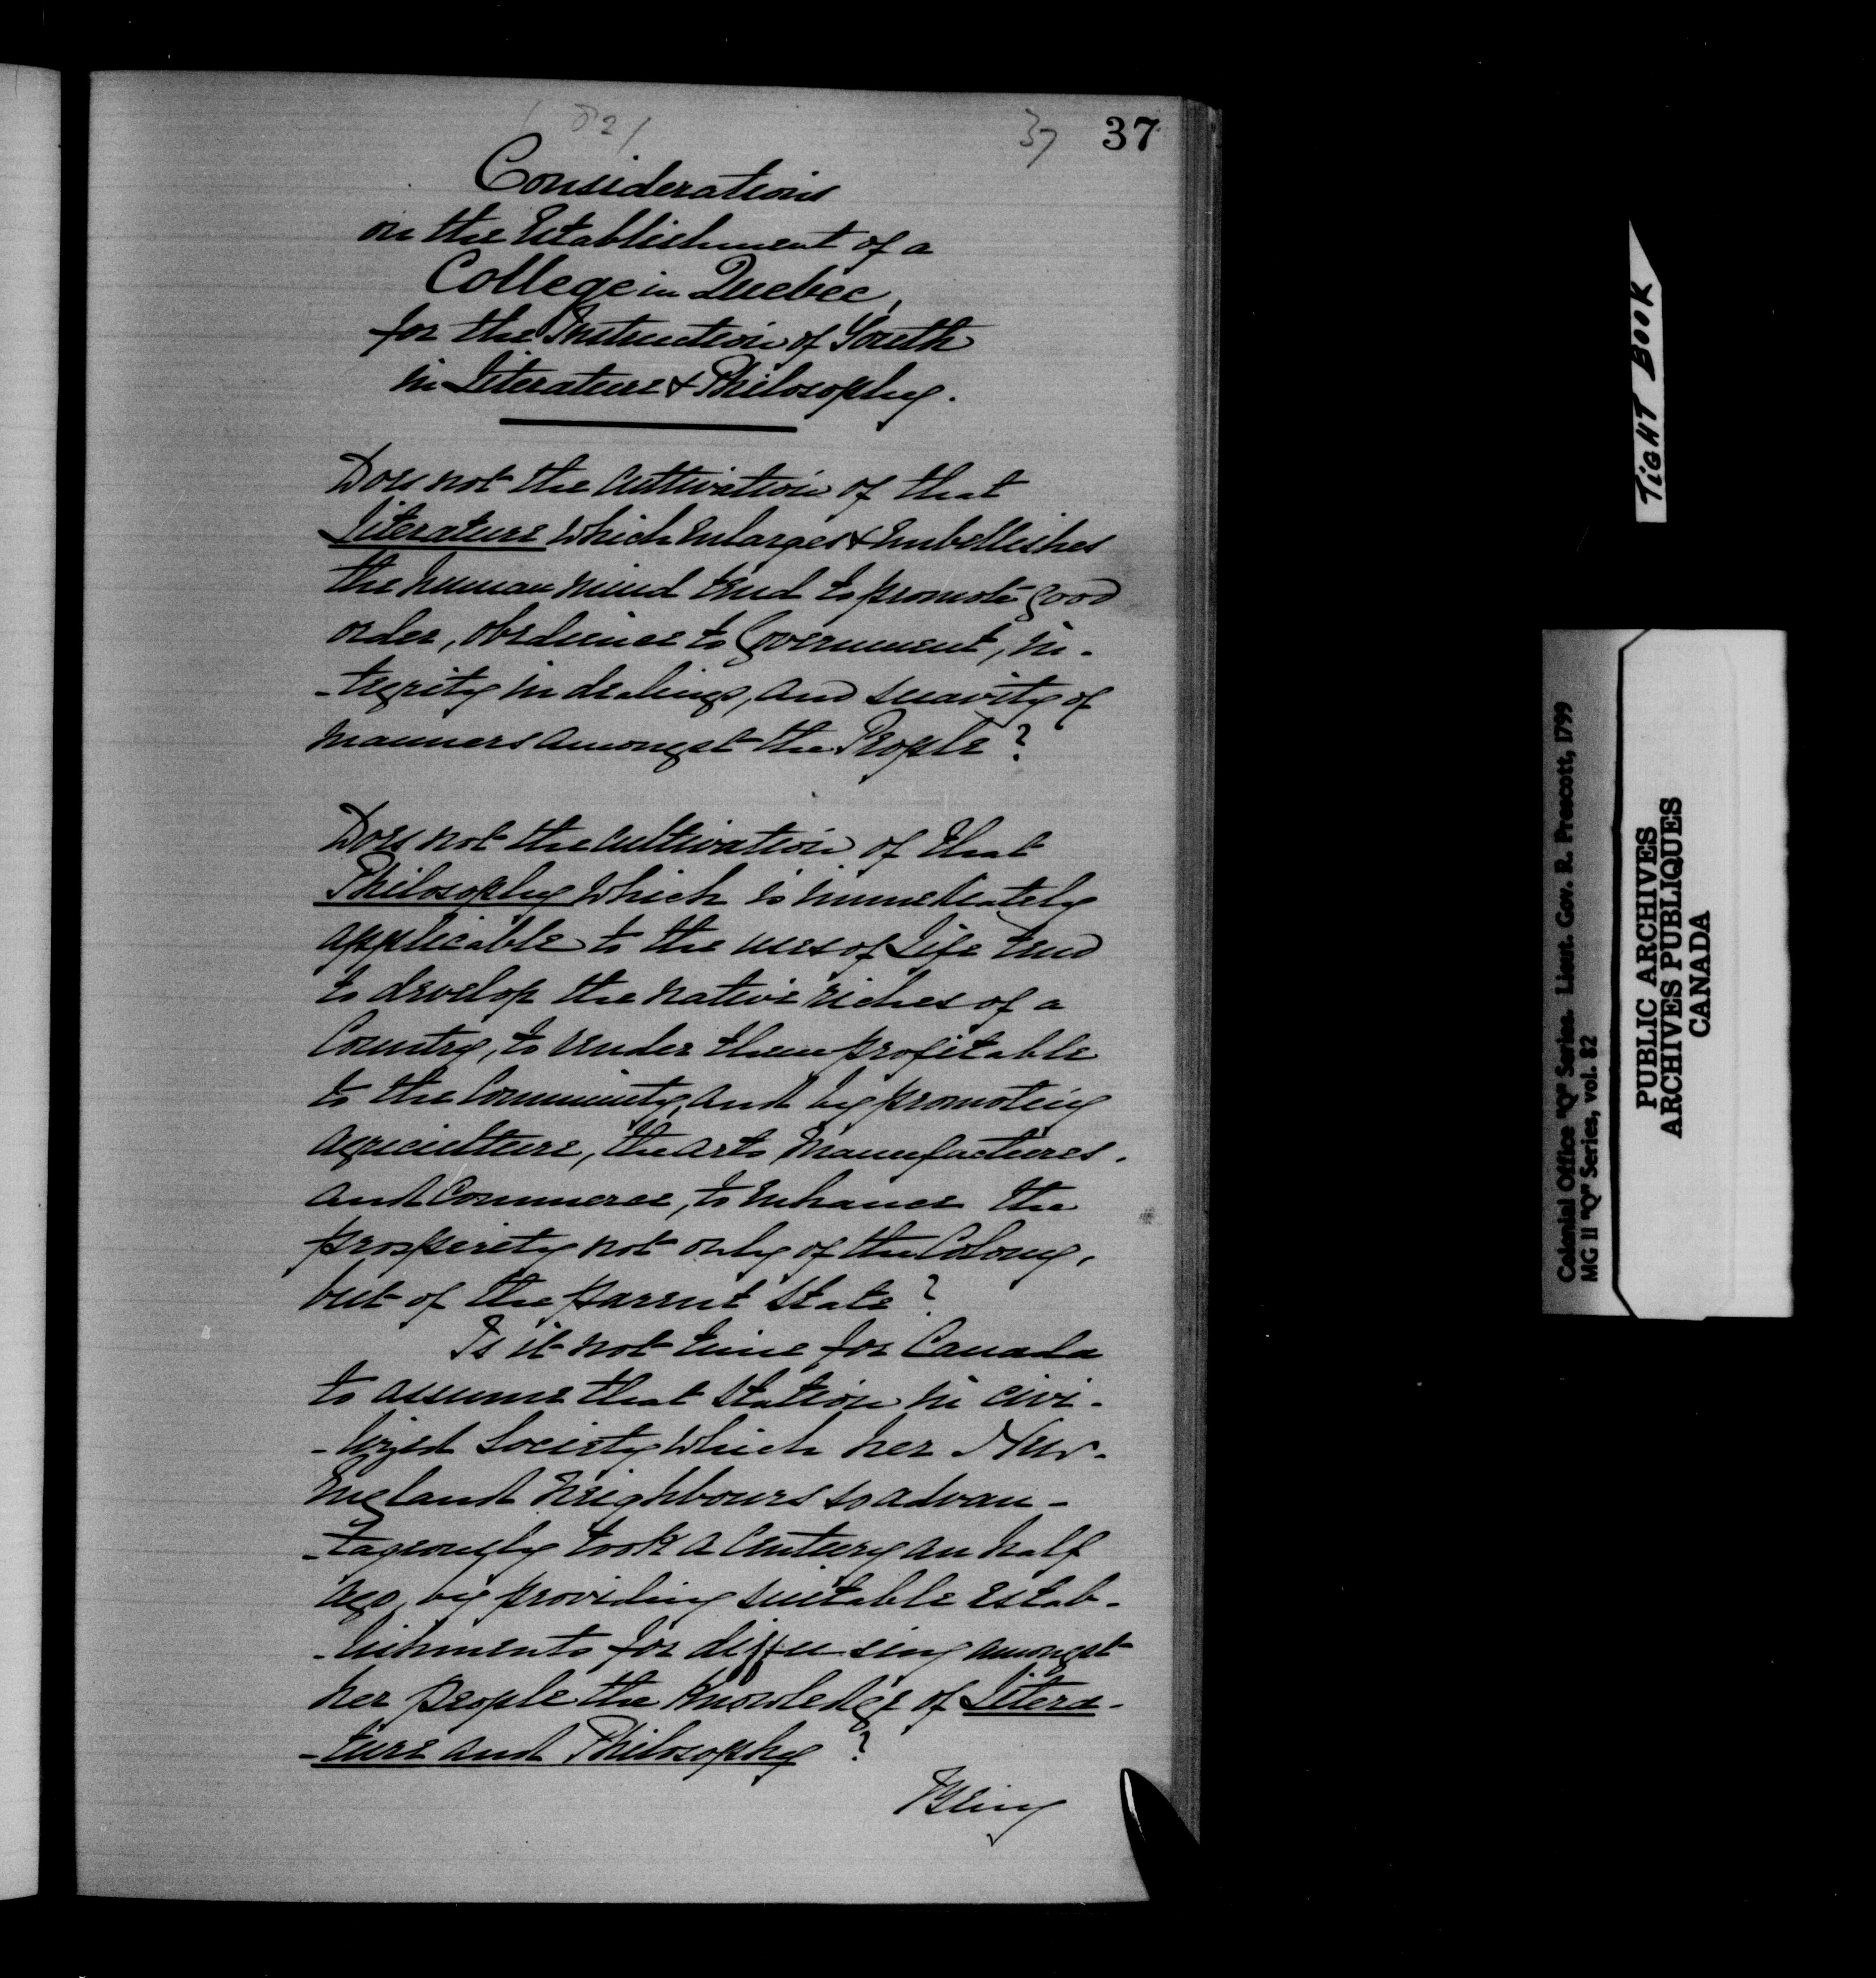 82
37
37
Considerations
on the Establishment of a
College in Quebec,
for the Instruction of Youth
in Literature & Philosophy.
Does not the cultivation of that
Literature which enlarges & embellishes
the human mind tend to promote good
order, obedience to Government, in-
-tegrity in dealings, and suavity of
manners amongst the People?
Does not the cultivation of that
Philosophy which is immediately
applicable to the uses of Life tend
to develop the native riches of a
Country, to render them profitable
to the Community, and by promoting
agriculture, the arts, Manufactures,
and Commerce, to enhance the
prosperity not only of the Colony,
but of the parent State?
Is it not time for Canada
to assume that Station in civi-
-lized Society which her New-
England Neighbours so advan-
-tageously took a Century an half
ago, by providing suitable estab-
-lishments for diffusing amongst
her people the knowledge of Litera-
-ture and Philosophy?
Being
TIGHT BOOK
Colonial Office "Q" Series. Lieut. Gov. R. Prescott, 1799
MG 11 "Q" Series, vol. 82
PUBLIC ARCHIVES
ARCHIVES PUBLIQUES
CANADA